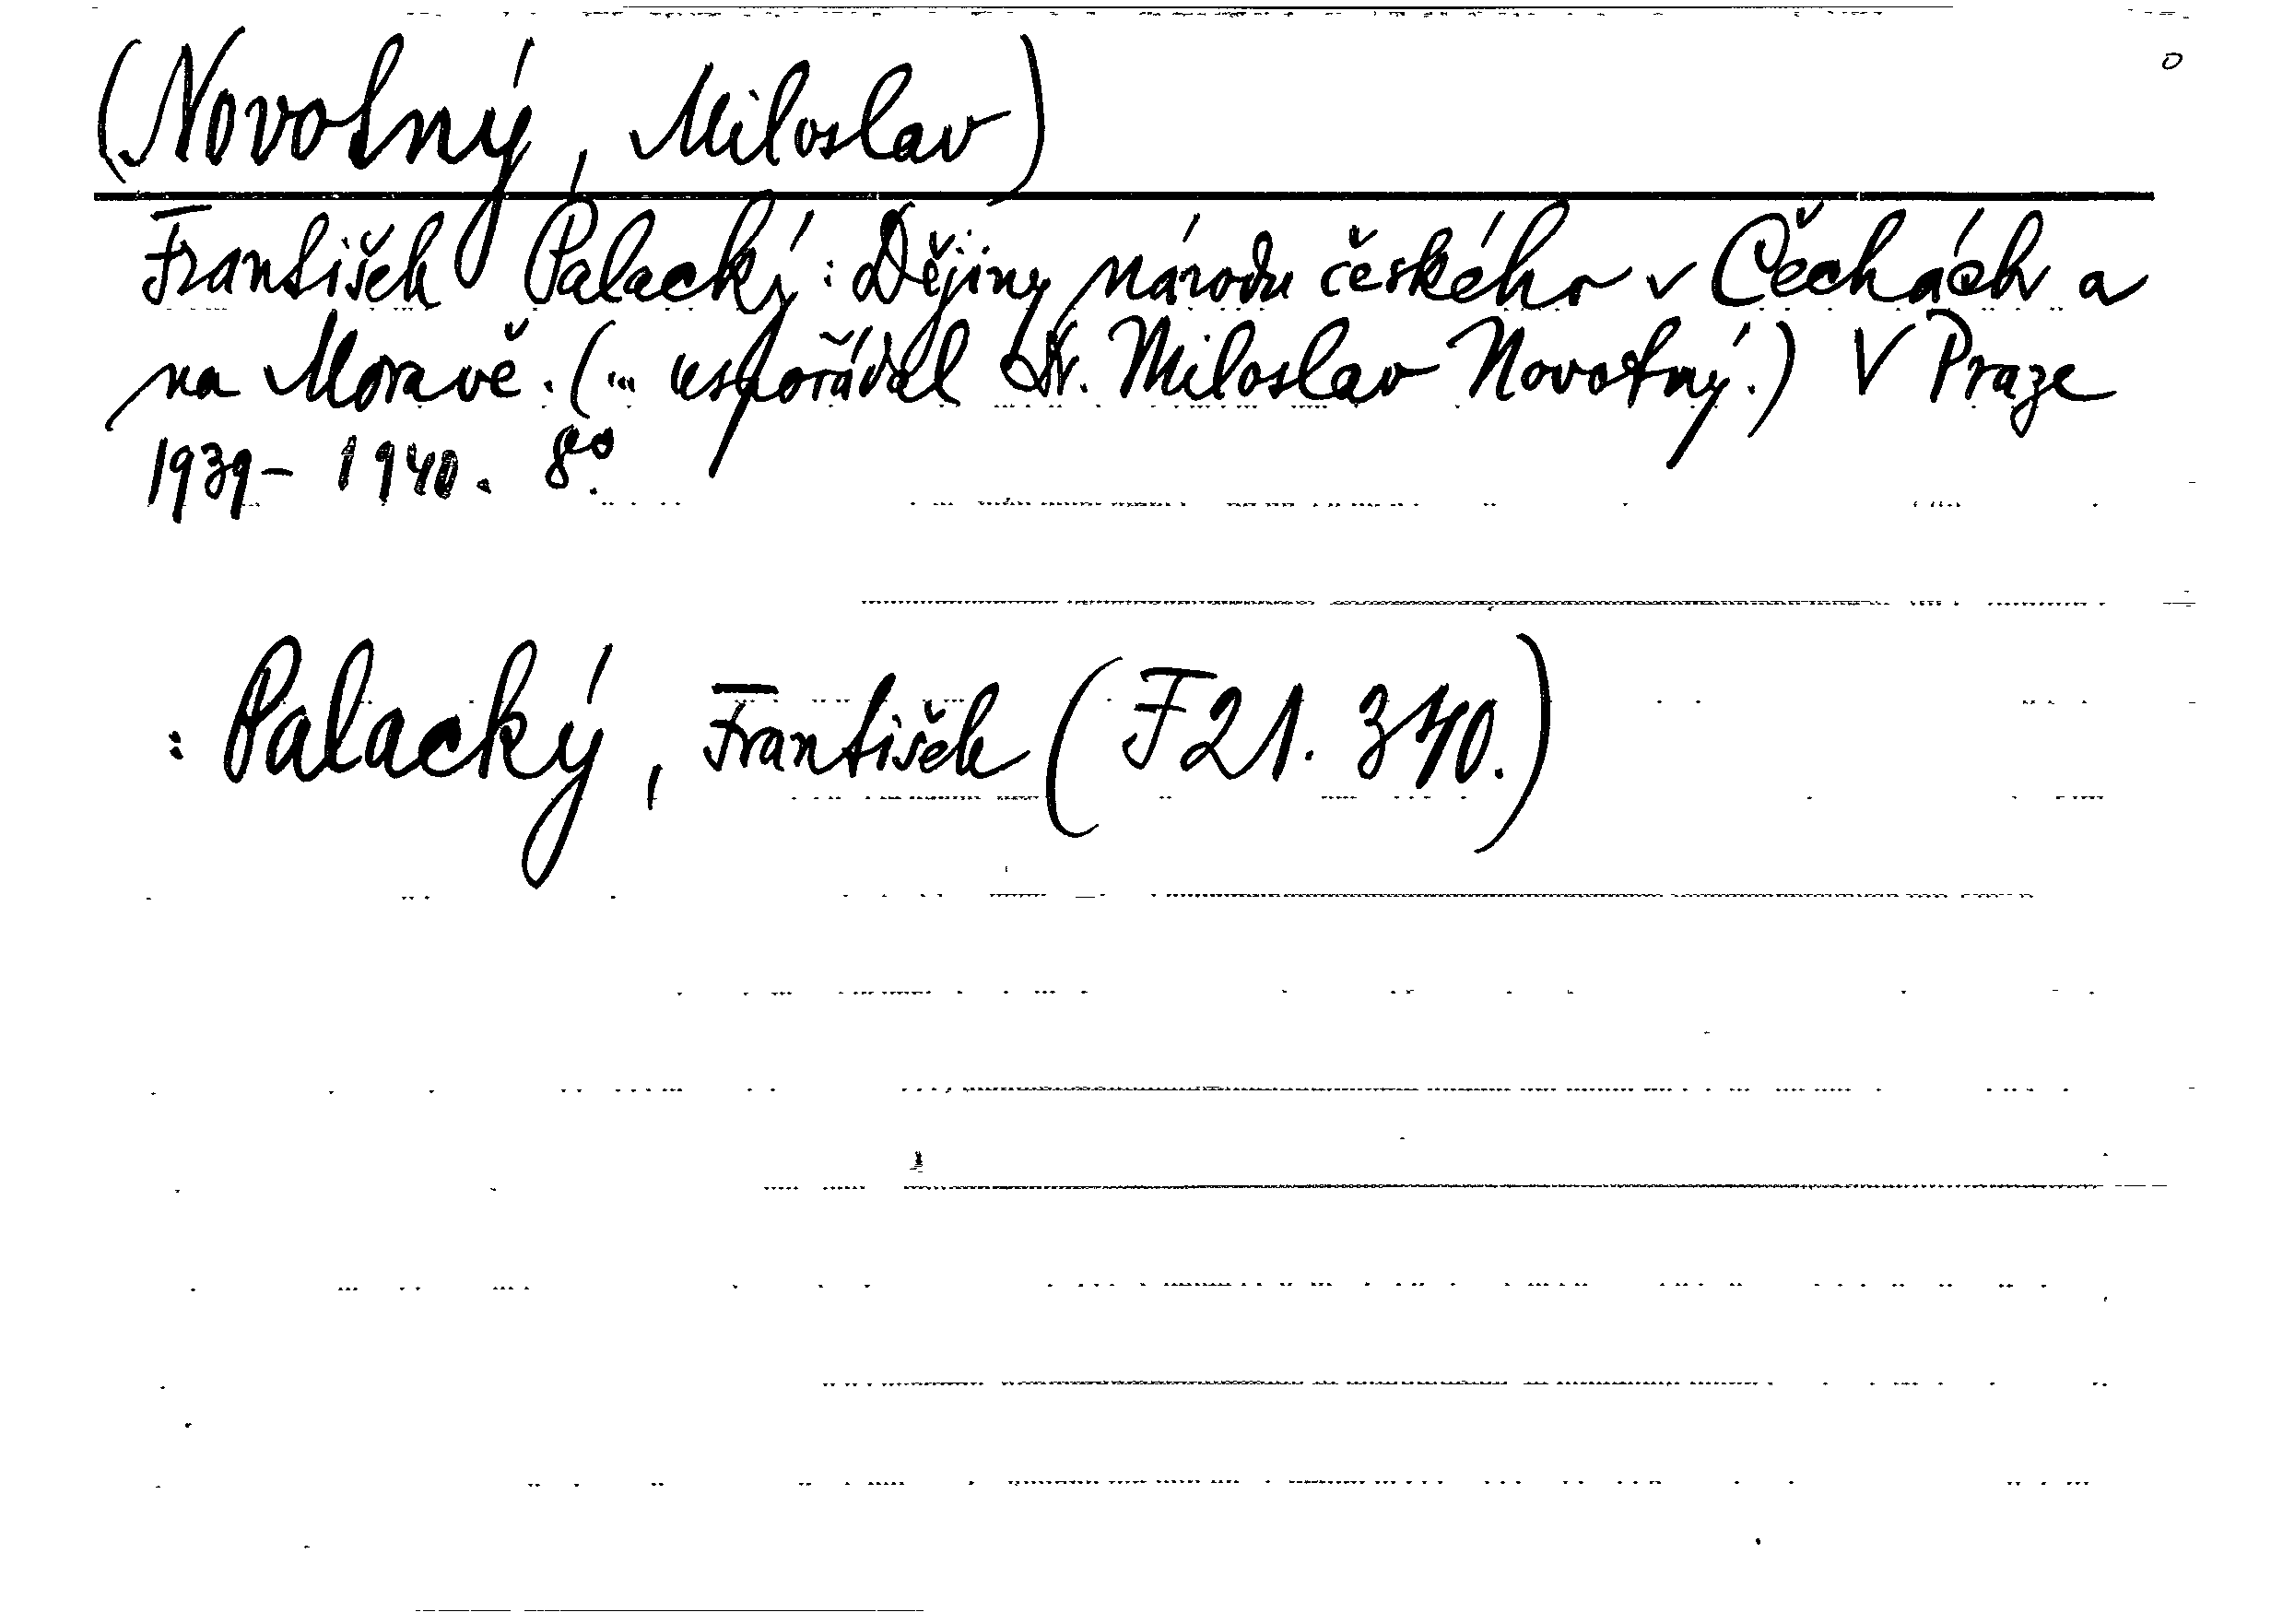 (Novotný, Miloslav)
František Palacký: Dějiny národu českého v Čechách a
na Moravě. (... uspořádal Dr. Miloslav Novotný.) V Praze
1939-1940. 8o.
: Palacký, František (F 21. 340.)